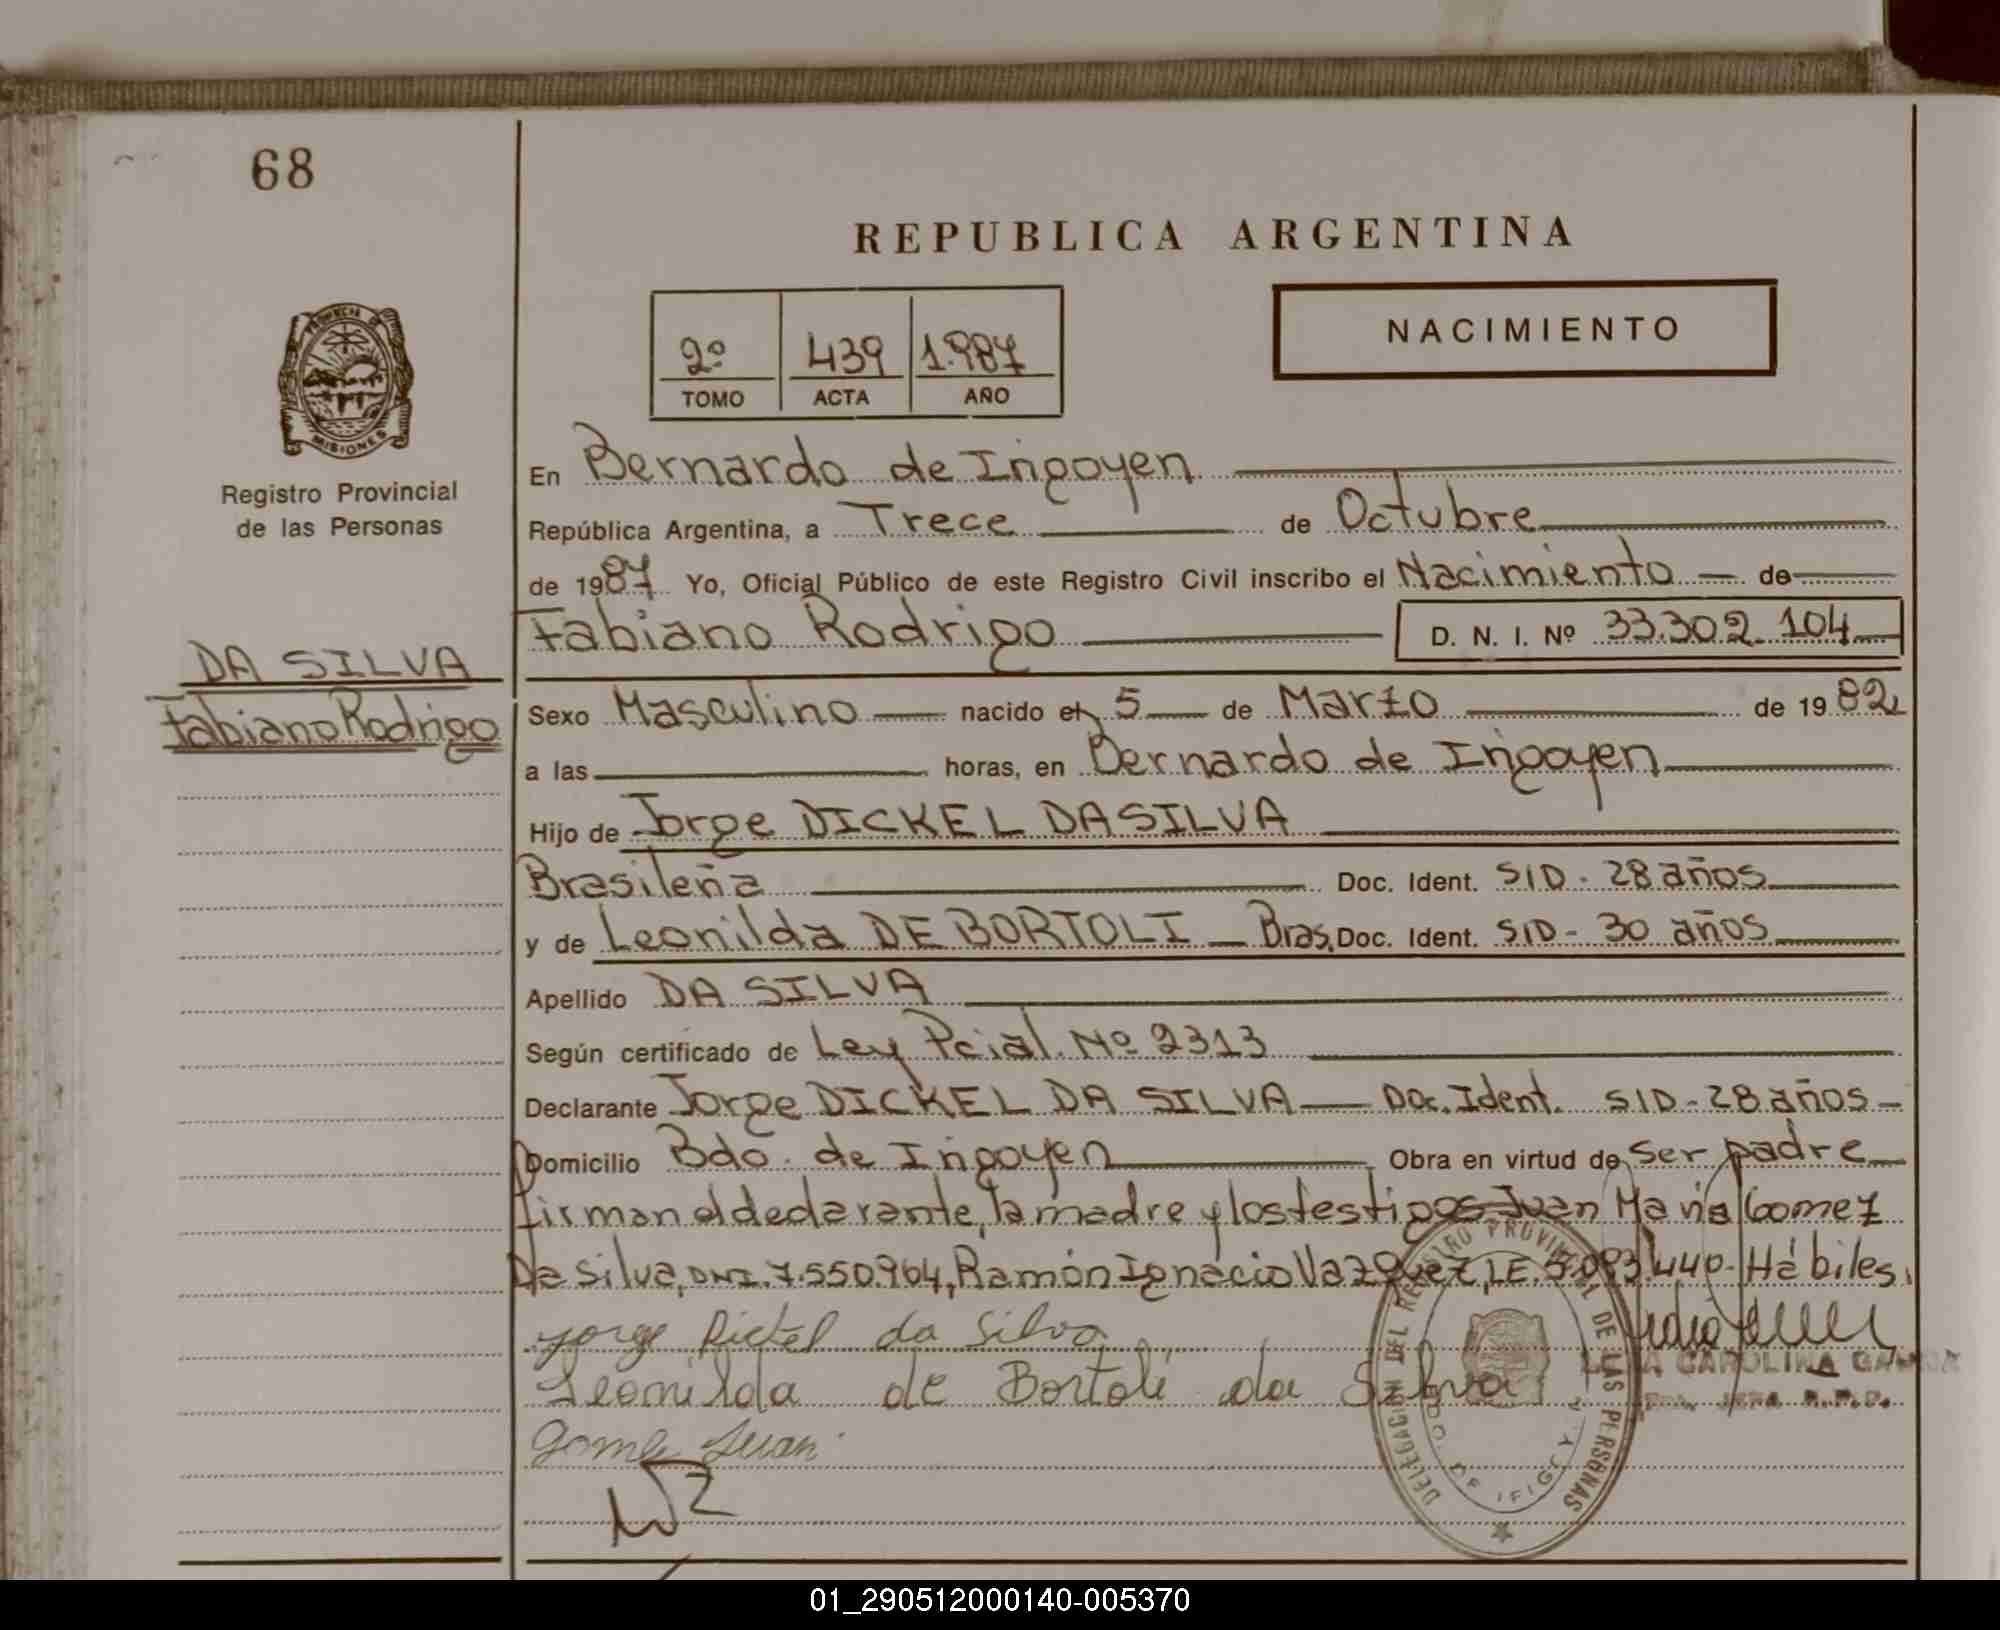 68
REPUBLICA ARGENTINA
NACIMIENTO
2º 439 1.987
TOMO ACTA AÑO
PROVINCIA DE
MISIONES
Registro Provincial
de las Personas
DA SILVA
Fabiano Rodrigo
En Bernardo de Irigoyen
República Argentina, a Trece de Octubre
de 1987 Yo, Oficial Público de este Registro Civil inscribo el Nacimiento de
Fabiano Rodrigo D. N. I. Nº 33.302.104
Sexo Masculino nacido el 5 de Marzo de 1982
a las horas, en Bernardo de Irigoyen
Hijo de Jorge DICKEL DA SILVA
Brasileña Doc. Ident. S/D - 28 años
y de Leonilda DE BORTOLI Bras. Doc. Ident. S/D - 30 años
Apellido DA SILVA
Según certificado de Ley Pcial. Nº 2313
Declarante Jorge DICKEL DA SILVA Doc. Ident. S/D - 28 años
Domicilio Bdo. de Irigoyen Obra en virtud de ser padre
firman el declarante, la madre y los testigos Juan Maria Gomez
Da Silva, DNI. 7.550.964, Ramón Ignacio Vazquez, L.E. 5.093.440- Hábiles.
Jorge Dickel da Silva
Leonilda de Bortoli da Silva
Gomez Juan
DELEGACION DEL REGISTRO PROVINCIAL DE LAS PERSONAS
CAROLINA
01_290512000140-005370